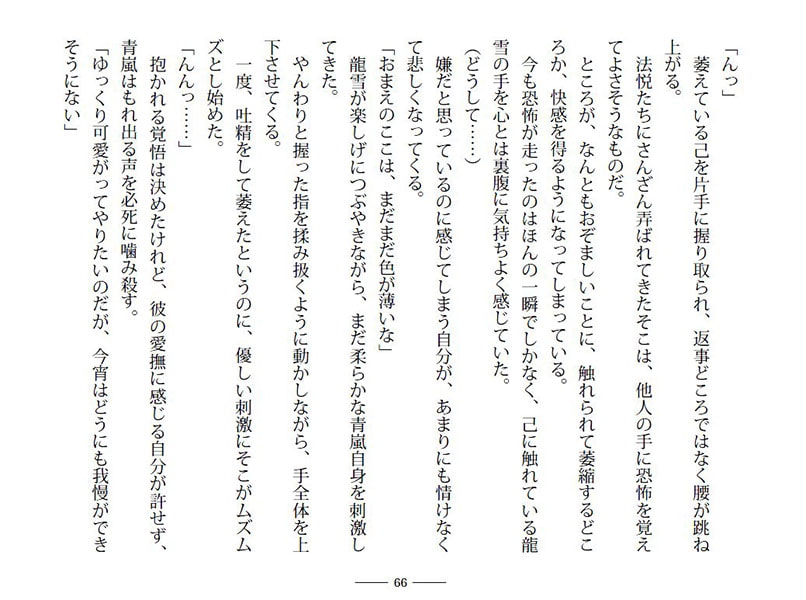 「んっ」
　萎えている己を片手に握り取られ、返事どころではなく腰が跳ね
上がる。
　法悦たちにさんざん弄ばれてきたそこは、他人の手に恐怖を覚え
てよさそうなものだ。
　ところが、なんともおぞましいことに、触れられて萎縮するどこ
ろか、快感を得るようになってしまっている。
　今も恐怖が走ったのはほんの一瞬でしかなく、己に触れている龍
雪の手を心とは裏腹に気持ちよく感じていた。
（どうして……）
　嫌だと思っているのに感じてしまう自分が、あまりにも情けなく
て悲しくなってくる。
「おまえのここは、まだまだ色が薄いな」
　龍雪が楽しげにつぶやきながら、まだ柔らかな青嵐自身を刺激し
てきた。
　やんわりと握った指を揉み扱くように動かしながら、手全体を上
下させてくる。
　一度、吐精をして萎えたというのに、優しい刺激にそこがムズム
ズとし始めた。
「んんっ……」
　抱かれる覚悟は決めたけれど、彼の愛撫に感じる自分が許せず、
青嵐はもれ出る声を必死に噛み殺す。
「ゆっくり可愛がってやりたいのだが、今宵はどうにも我慢ができ
そうにない」
66